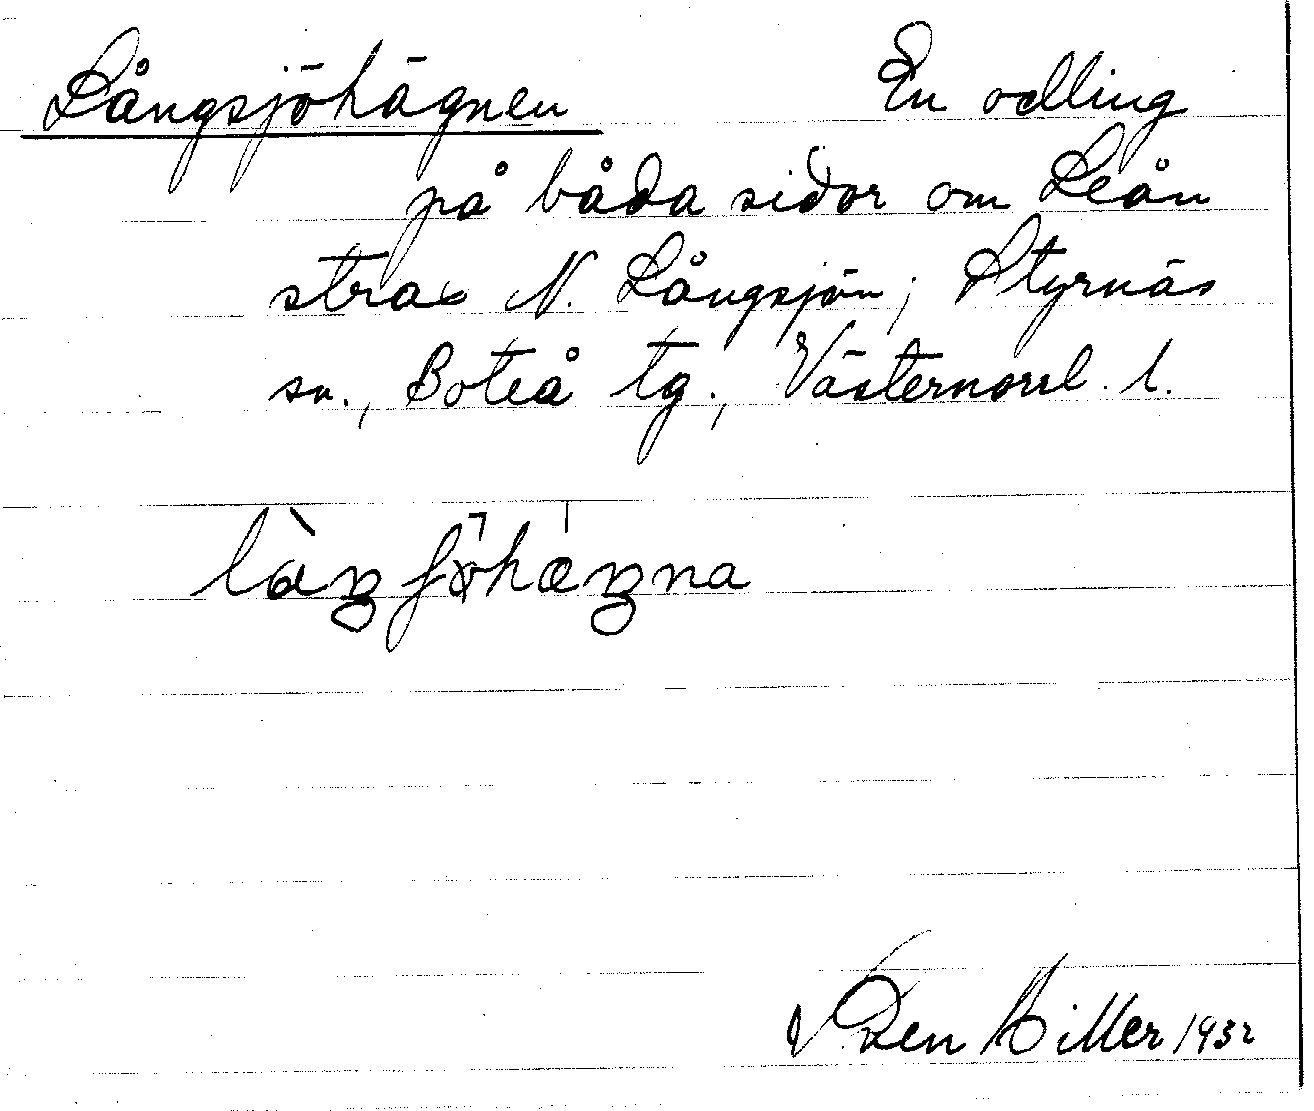 Långsjöhägnen En odling
på båda sidor om Leån
strax N. Långsjön; Styrnäs
sn., Boteå tg., Västernorrl. l.
Hiller 1932